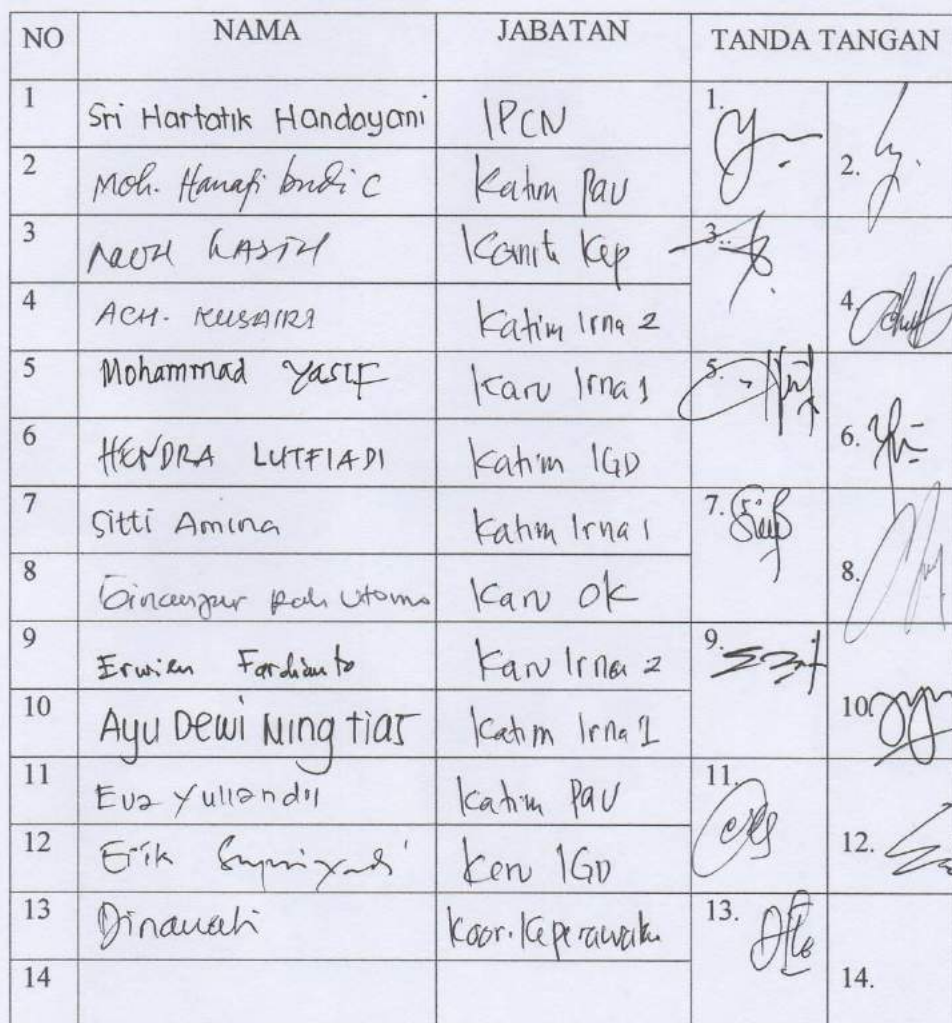 NO NAMA JABATAN TANDA TANGAN
1 Sri Hartatik Handayani IPCN 1.
2 Moh. Hanafi budi C Katim Pav 2.
3 KASIH Komite Kep 3.
4 ACH. KUSAIRI Katim Irna 2 4.
5 Mohammad Yasif Karu Irna 1 5.
6 HENDRA LUTFIADI Katim IGD 6.
7 Sitti Amina Katim Irna 1 7.
8 Utomo Karu OK 8.
9 Erwien Fardianto Karu Irna 2 9.
10 Ayu Dewi Ningtias Katim Irna 1 10.
11 Eva Yuliandil Katim Pav 11.
12 Erik Supriyadi Karu IGD 12.
13 Dinawati Koor. Keperawatan 13.
14 14.